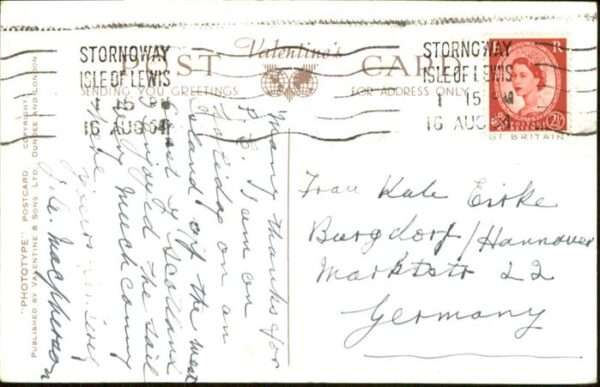 STORNOWAY
ISLE OF LEWIS
1 15
16 AUG 54
STORNOWAY
ISLE OF LEWIS
1 15
16 AUG
POST CARD
Valentine's
SENDING YOU GREETINGS
FOR ADDRESS ONLY
"PHOTOTYPE" POSTCARD. COPYRIGHT.
PUBLISHED BY VALENTINE & SONS LTD. DUNDEE AND LONDON
Many thanks for
P. C. I am on
holiday on an
Island off the west
Coast of Scotland
I enjoyed the sail
very much coming
here
Yours sincerely
Macpherson
Frau Kate Eirke
Burgdorf/Hannover
Marktstr 22
Germany
2½